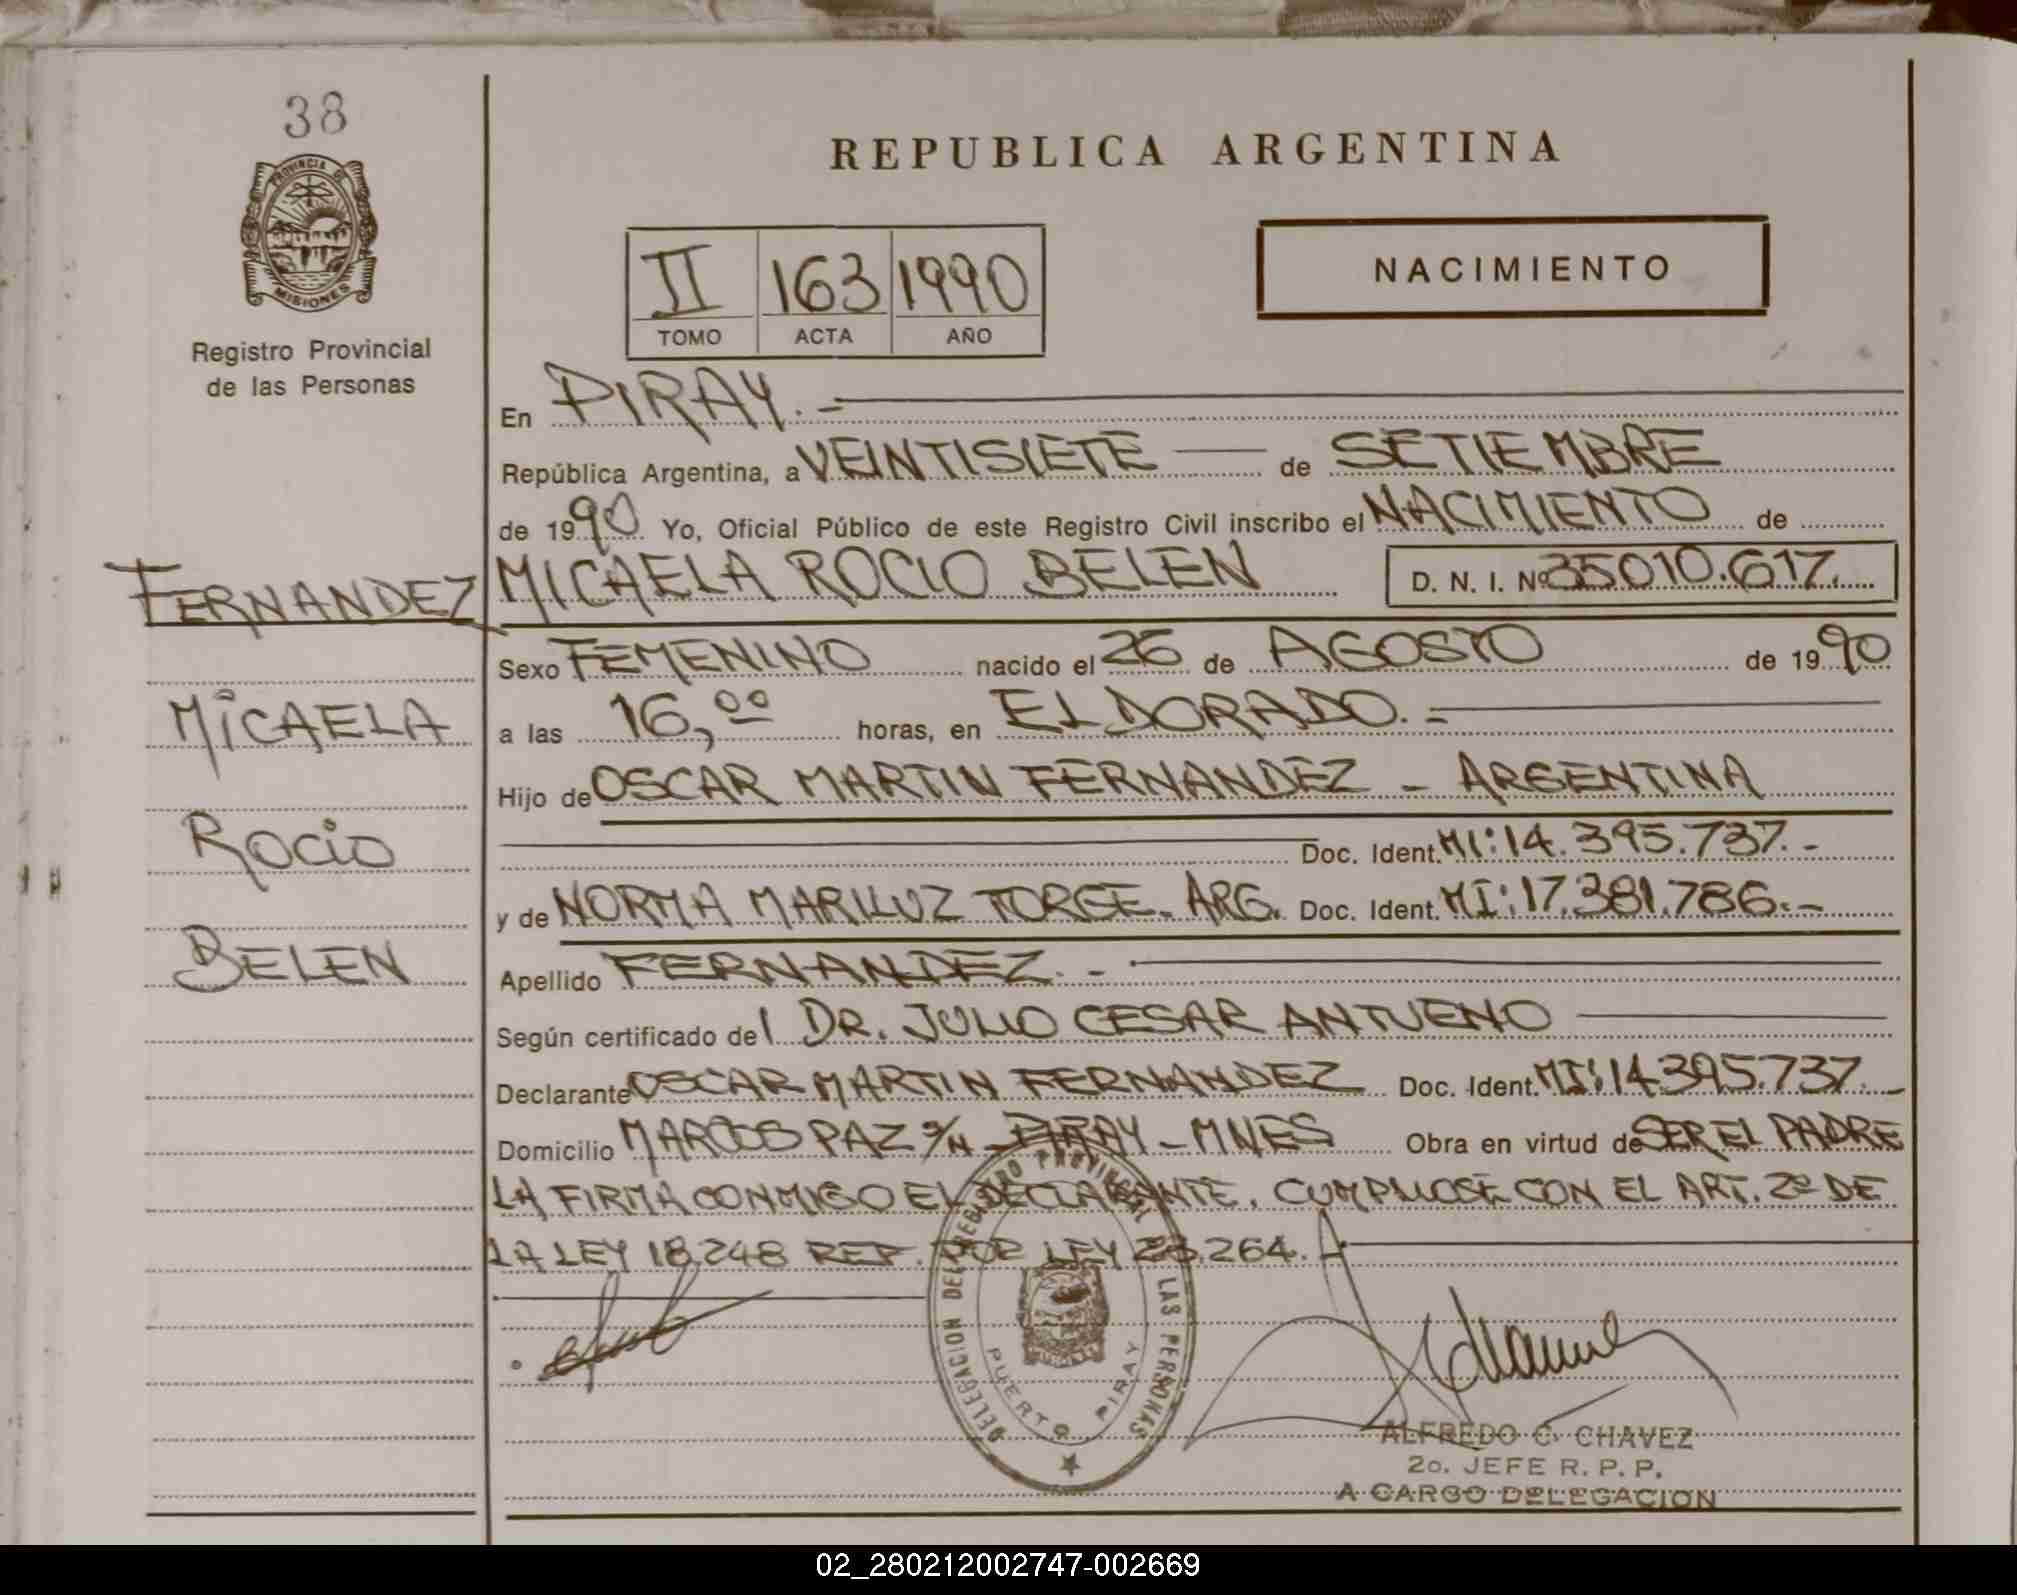 38
PROVINCIA DE
MISIONES
Registro Provincial
de las Personas
FERNANDEZ
MICAELA
ROCIO
BELEN
REPUBLICA ARGENTINA
II 163 1990
TOMO ACTA AÑO
NACIMIENTO
En PIRAY.-
República Argentina, a VEINTISIETE de SETIEMBRE
de 1990 Yo, Oficial Público de este Registro Civil inscribo el NACIMIENTO de
MICAELA ROCIO BELEN D. N. I. Nº 35010.617.
Sexo FEMENINO nacido el 26 de AGOSTO de 1990
a las 16,00 horas, en ELDORADO.-
Hijo de OSCAR MARTIN FERNANDEZ - ARGENTINA
Doc. Ident. MI: 14.395.737.-
y de NORMA MARILUZ TORGE. ARG. Doc. Ident. MI: 17.381.786.-
Apellido FERNANDEZ.-
Según certificado del DR. JULIO CESAR ANTUENO
Declarante OSCAR MARTIN FERNANDEZ Doc. Ident. MI: 14.395.737.-
Domicilio MARCOS PAZ S/N - PIRAY - MNES Obra en virtud de SER EL PADRE
LA FIRMA CONMIGO EL DECLARANTE. CUMPLIOSE CON EL ART. 2º DE
LA LEY 18.248 REF. POR LEY 23.264.
DELEGACION DEL REGISTRO PROVINCIAL DE LAS PERSONAS
PUERTO PIRAY
ALFREDO C. CHAVEZ
2o. JEFE R. P. P.
A CARGO DELEGACION
02_280212002747-002669